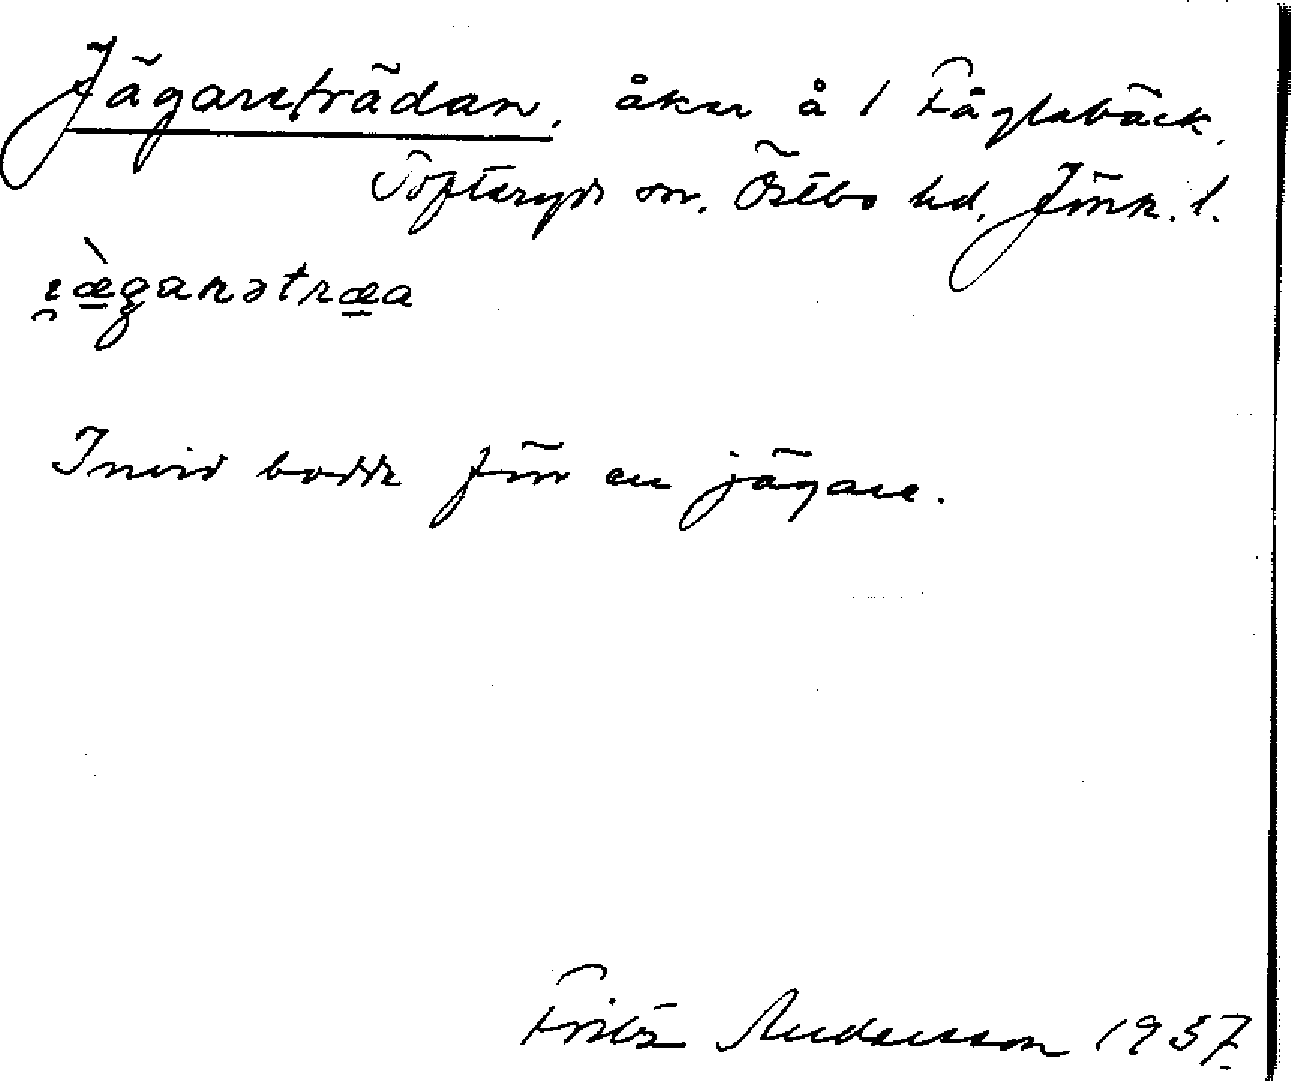 Jägareträdan, åker å 1 Fåglabäck,
Tofteryds sn. Östbo hd, Jönk. l.
i̯æ̀garətræa
Invid bodde förr en jägare.
Fritz Andersson 1937